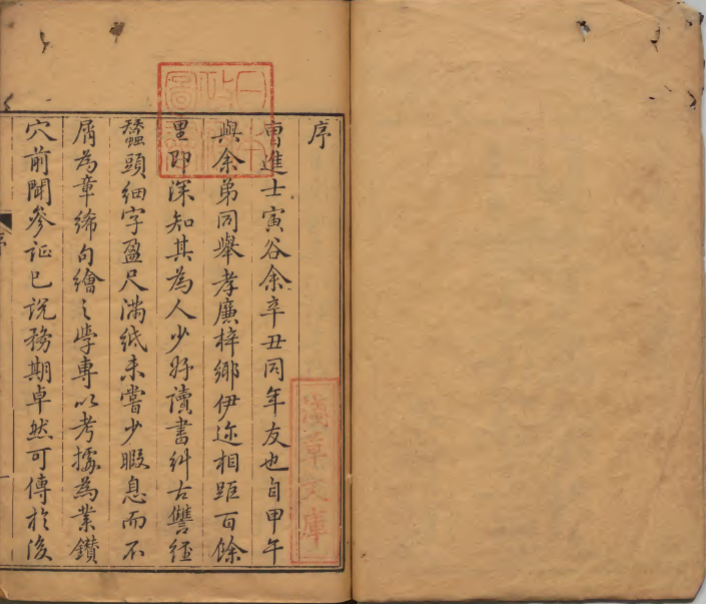 序
曹進士寅谷余辛丑同年友也自甲午
與余弟同舉孝廉梓鄉伊迩相距百餘
里即深知其為人少好讀書糾古讐經
蠶頭細字盈尺滿紙未嘗少暇息而不
屑為章絺句繪之學專以考據為業鑚
穴前聞參証已説務期卓然可傳於後
序
一
淺草文庫